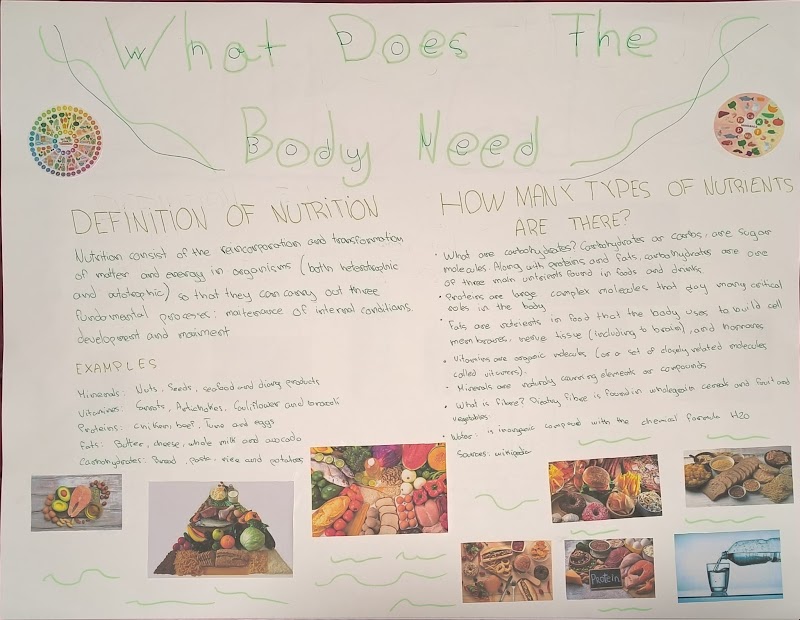 What Does The
Body Need
DEFINITION OF NUTRITION
Nutrition consist of the reincorporation and transformation
of matter and energy in organisms (both heterotrophic
and autotrophic) so that they can carry out three
fundamental processes: maitenance of internal conditions,
development and
EXAMPLES
Minerals: Nuts, Seeds, seafood and diary products
Vitamines: Carrots, Artichokes, Couliflower and brocoli
Proteins: Chicken beef, Tuna and eggs
Fats: Butter, cheese, whole milk and avocado
Carbohydrates: Bread, pasta, rice and potatoes
HOW MANY TYPES OF NUTRIENTS
ARE THERE?
• What are carbohydrates? Carbohydrates or carbs, are sugar
molecules. Along with proteins and fats, carbohydrates are one
of three main found in foods and drinks.
• Proteins are large complex molecules that many critical
roles in the body
• Fats are nutrients in food that the body uses to build cell
membranes, nerve tissue (including to brain), and hormones
• Vitamins are organic molecules (or a set of closely related molecules
called vitamers).
• Minerals are naturaly elements or compounds
• What is fibre? Dietary fibre is found in wholegrain cereals and fruit and
vegetables.
• Water: is inorganic compound with the chemical formula H2O
Sources: wikipedia
Protein